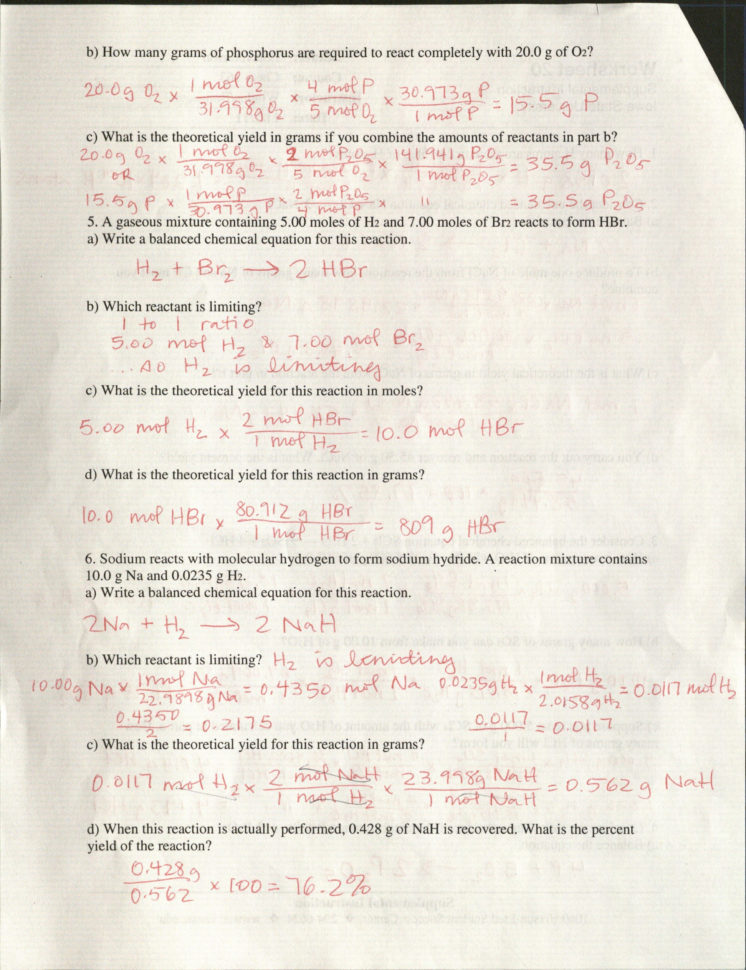 b) How many grams of phosphorus are required to react completely with 20.0 g of O2?
20.0g O₂ × 1 mol O₂ / 31.998g O₂ × 4 mol P / 5 mol O₂ × 30.973g P / 1 mol P = 15.5 g P
c) What is the theoretical yield in grams if you combine the amounts of reactants in part b?
20.0g O₂ × 1 mol O₂ / 31.998g O₂ × 2 mol P₂O₅ / 5 mol O₂ × 141.941g P₂O₅ / 1 mol P₂O₅ = 35.5 g P₂O₅
OR
15.5g P × 1 mol P / 30.973g P × 2 mol P₂O₅ / 4 mol P × " = 35.5g P₂O₅
5. A gaseous mixture containing 5.00 moles of H2 and 7.00 moles of Br2 reacts to form HBr.
a) Write a balanced chemical equation for this reaction.
H₂ + Br₂ → 2 HBr
b) Which reactant is limiting?
1 to 1 ratio
5.00 mol H₂ & 7.00 mol Br₂
... so H₂ is limiting
c) What is the theoretical yield for this reaction in moles?
5.00 mol H₂ × 2 mol HBr / 1 mol H₂ = 10.0 mol HBr
d) What is the theoretical yield for this reaction in grams?
10.0 mol HBr × 80.912 g HBr / 1 mol HBr = 809 g HBr
6. Sodium reacts with molecular hydrogen to form sodium hydride. A reaction mixture contains
10.0 g Na and 0.0235 g H2.
a) Write a balanced chemical equation for this reaction.
2Na + H₂ → 2 NaH
b) Which reactant is limiting? H₂ is limiting
10.00g Na × 1 mol Na / 22.9898g Na = 0.4350 mol Na 0.0235g H₂ × 1 mol H₂ / 2.0158g H₂ = 0.0117 mol H₂
0.4350 / 2 = 0.2175 0.0117 / 1 = 0.0117
c) What is the theoretical yield for this reaction in grams?
0.0117 mol H₂ × 2 mol NaH / 1 mol H₂ × 23.998g NaH / 1 mol NaH = 0.562 g NaH
d) When this reaction is actually performed, 0.428 g of NaH is recovered. What is the percent
yield of the reaction?
0.428g / 0.562 × 100 = 76.2%